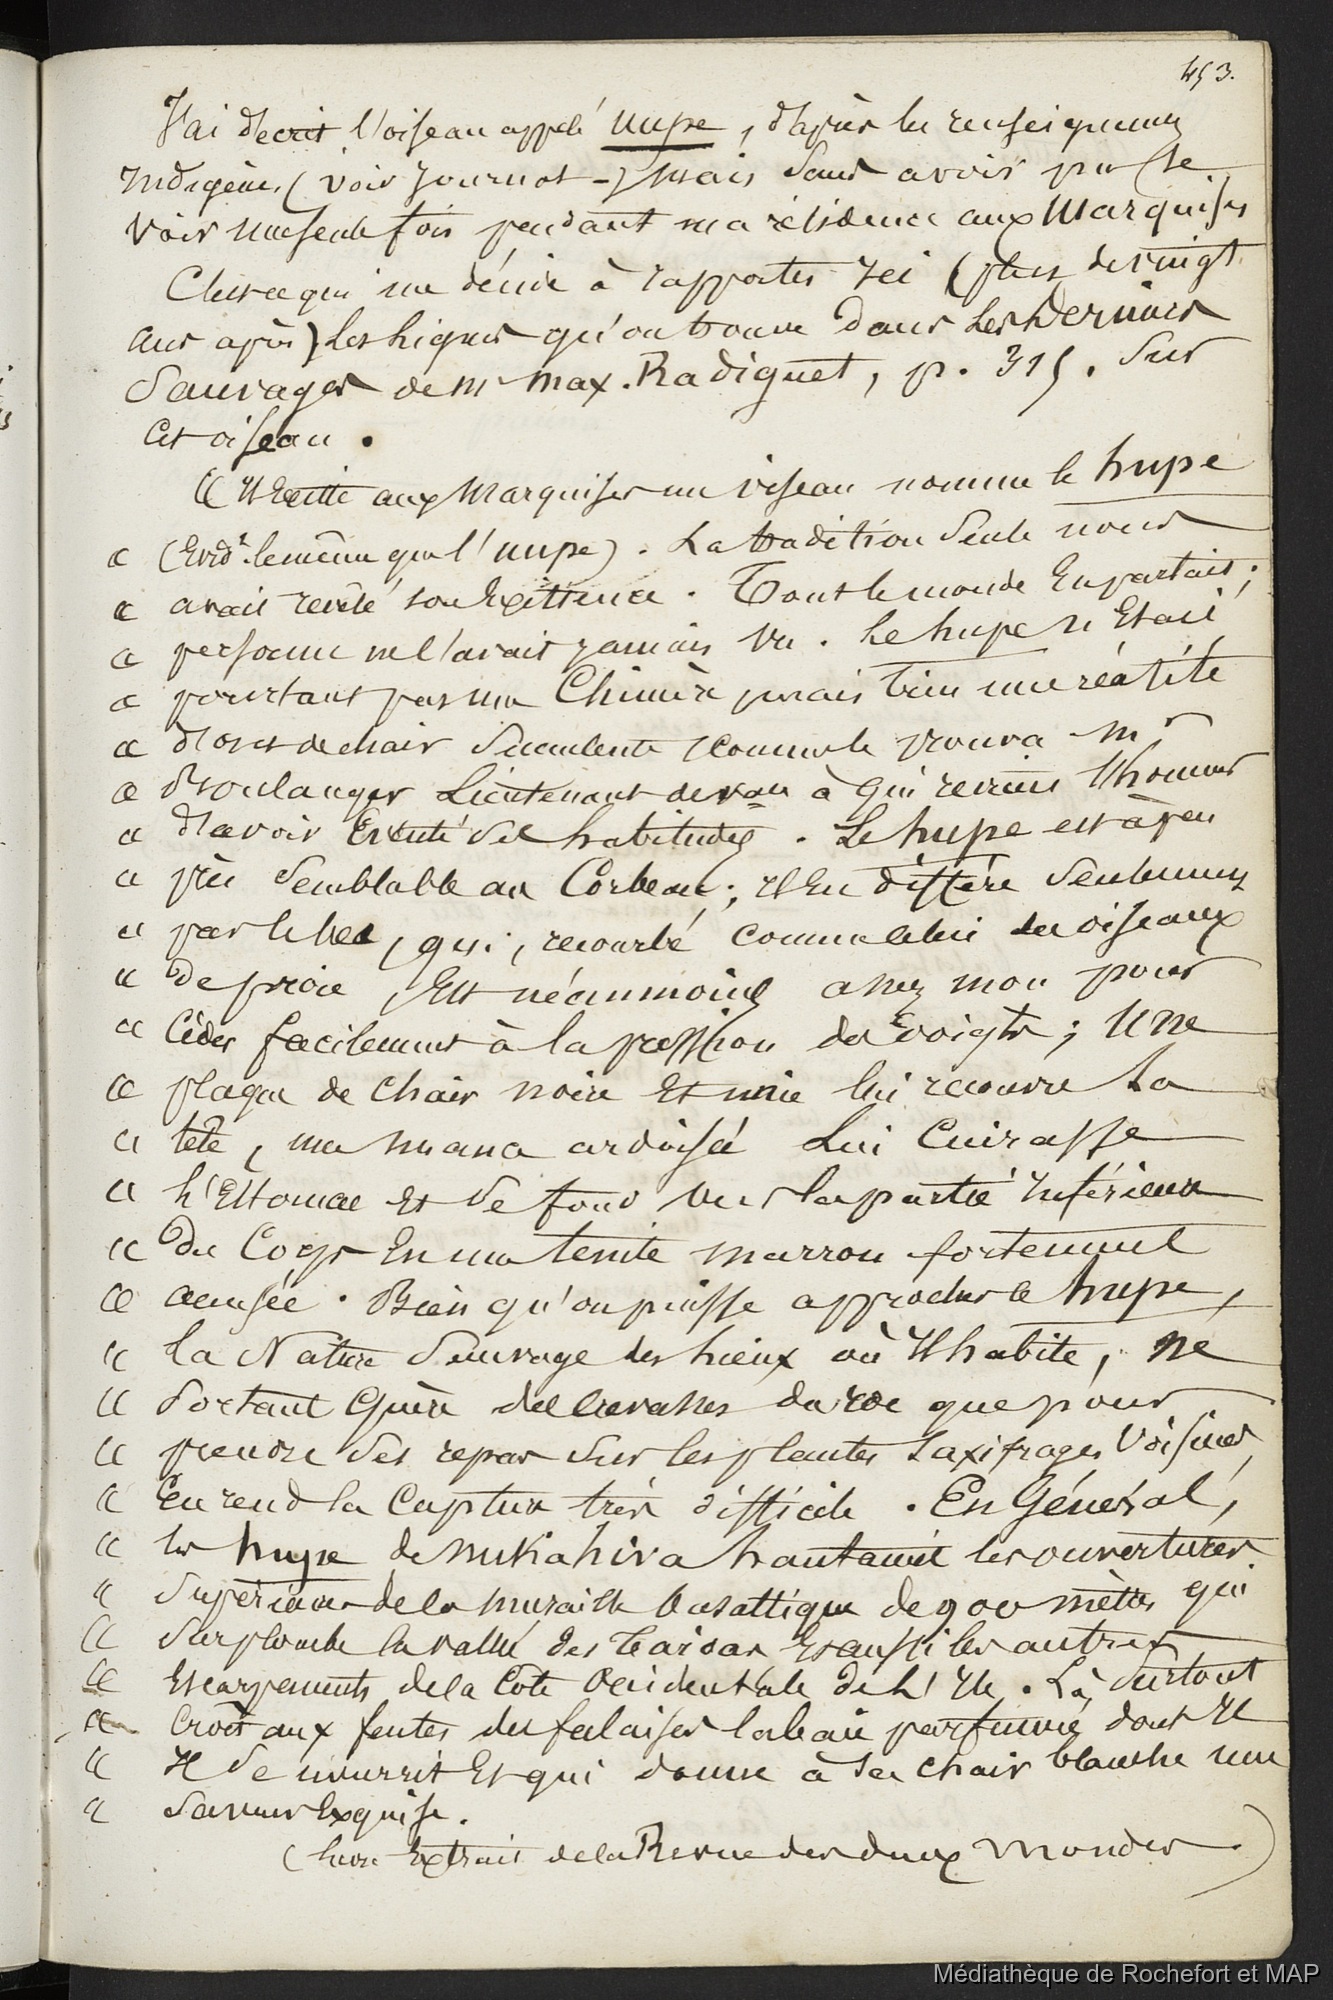 453.
J'ai decrit l'oiseau appelé uupe, d'après les renseignemens
Indigènes (voir journal -) mais sans avoir pu le
voir une seule fois pendant ma résidence aux Marquises
C'est ce qui me décide à rapporter ici (plus de vingt
ans après) les lignes qu'on trouve dans les Derniers
Sauvages de Mr Max. Radiguet, p. 315. Sur
cet oiseau.
« Il Existe aux Marquises un oiseau nommé le hupe
« (Evidt. le même que l'uupe). La tradition seule nous
« avait révélé son Existence. Tout le monde En parlait;
« personne ne l'avait jamais vu. Le hupe n'Etait
« pourtant pas une Chimère mais bien une réalité
« d'os et de chair succulente comme le prouva Mr
« Boulanger Lieutenant de vau à qui revient l'honneur
« d'avoir Eventé ses habitudes. Le hupe est à peu
« près semblable au Corbeau; il En diffère seulement
« par le bec, qui, recourbé comme celui des oiseaux
« de proie, Est néanmoins assez mou pour
« Céder facilement à la pression des doigts; Une
« plaque de chair noire Et unie lui recouvre la
« tête, une nuance ardoisée Lui Cuirasse
« l'Estomac Et se fond vers la partie Inférieure
« du Corps En une teinte marron fortement
« accusée. Bien qu'on puisse approcher le hupe,
« La Nature Sauvage des lieux où Il habite, ne
« Sortant Guère des crevasses du roc que pour
« prendre ses repas sur les plantes saxifrages voisines,
« En rend la Capture très difficile. En Général,
« les hupe de Nukahiva hantaient les ouvertures
« Supérieures de la muraille basaltique de 900 mètres qui
« Surplombe la vallée des Taïoas Et aussi les autres
« Escarpements de la Côte Occidentale de l'Ile. Là, surtout
« croît aux fentes des falaises la baie parfumée dont Il
« Il se nourrit Et qui donne à sa chair blanche une
« Saveur Exquise.
( livre Extrait de la Revue des deux Mondes )
Médiathèque de Rochefort et MAP